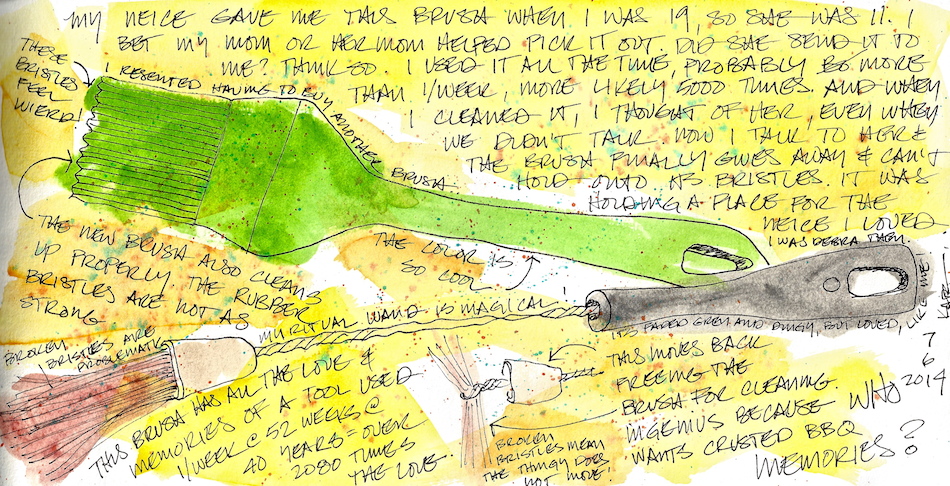 MY NEICE GAVE ME THIS BRUSH WHEN I WAS 19, SO SHE WAS 11. I
BET MY MOM OR HER MOM HELPED PICK IT OUT. DID SHE SEND IT TO
ME? THINK SO I USED IT ALL THE TIME, PROBABLY MORE
THAN 1/WEEK, MORE LIKELY 5000 TIMES. AND WHEN
I CLEANED IT, I THOUGHT OF HER, EVEN WHEN
WE DIDN'T TALK. NOW I TALK TO HER &
THE BRUSH FINALLY GIVES AWAY & CAN'T
HOLD ONTO ITS BRISTLES. IT WAS
HOLDING A PLACE FOR THE
NEICE I LOVED.
I WAS DEBRA THEN.
THESE
BRISTLES
FEEL
WIERD!
I RESENTED HAVING TO BUY ANOTHER BRUSH
THE NEW BRUSH ALSO CLEANS
UP PROPERLY. THE RUBBER
BRISTLES ARE NOT AS
STRONG
THE COLOR IS
SO COOL
MY RITUAL WAND IS MAGICAL!
IT'S FADED GREY AND DINGY, BUT LOVED, LIKE ME!
BROKEN
BRISTLES ARE
PROBLEMATIC
THIS BRUSH HAS ALL THE LOVE &
MEMORIES OF A TOOL USED
1/WEEK @ 52 WEEKS @
40 YEARS = OVER
2080 TIMES
THE LOVE
BROKEN
BRISTLES MEAN
THE THINGY DOES
NOT MOVE!
THIS MOVES BACK
FREEING THE
BRUSH FOR CLEANING.
INGENIUS BECAUSE WHO
WANTS CRUSTED BBQ
MEMORIES?
7
6
2014